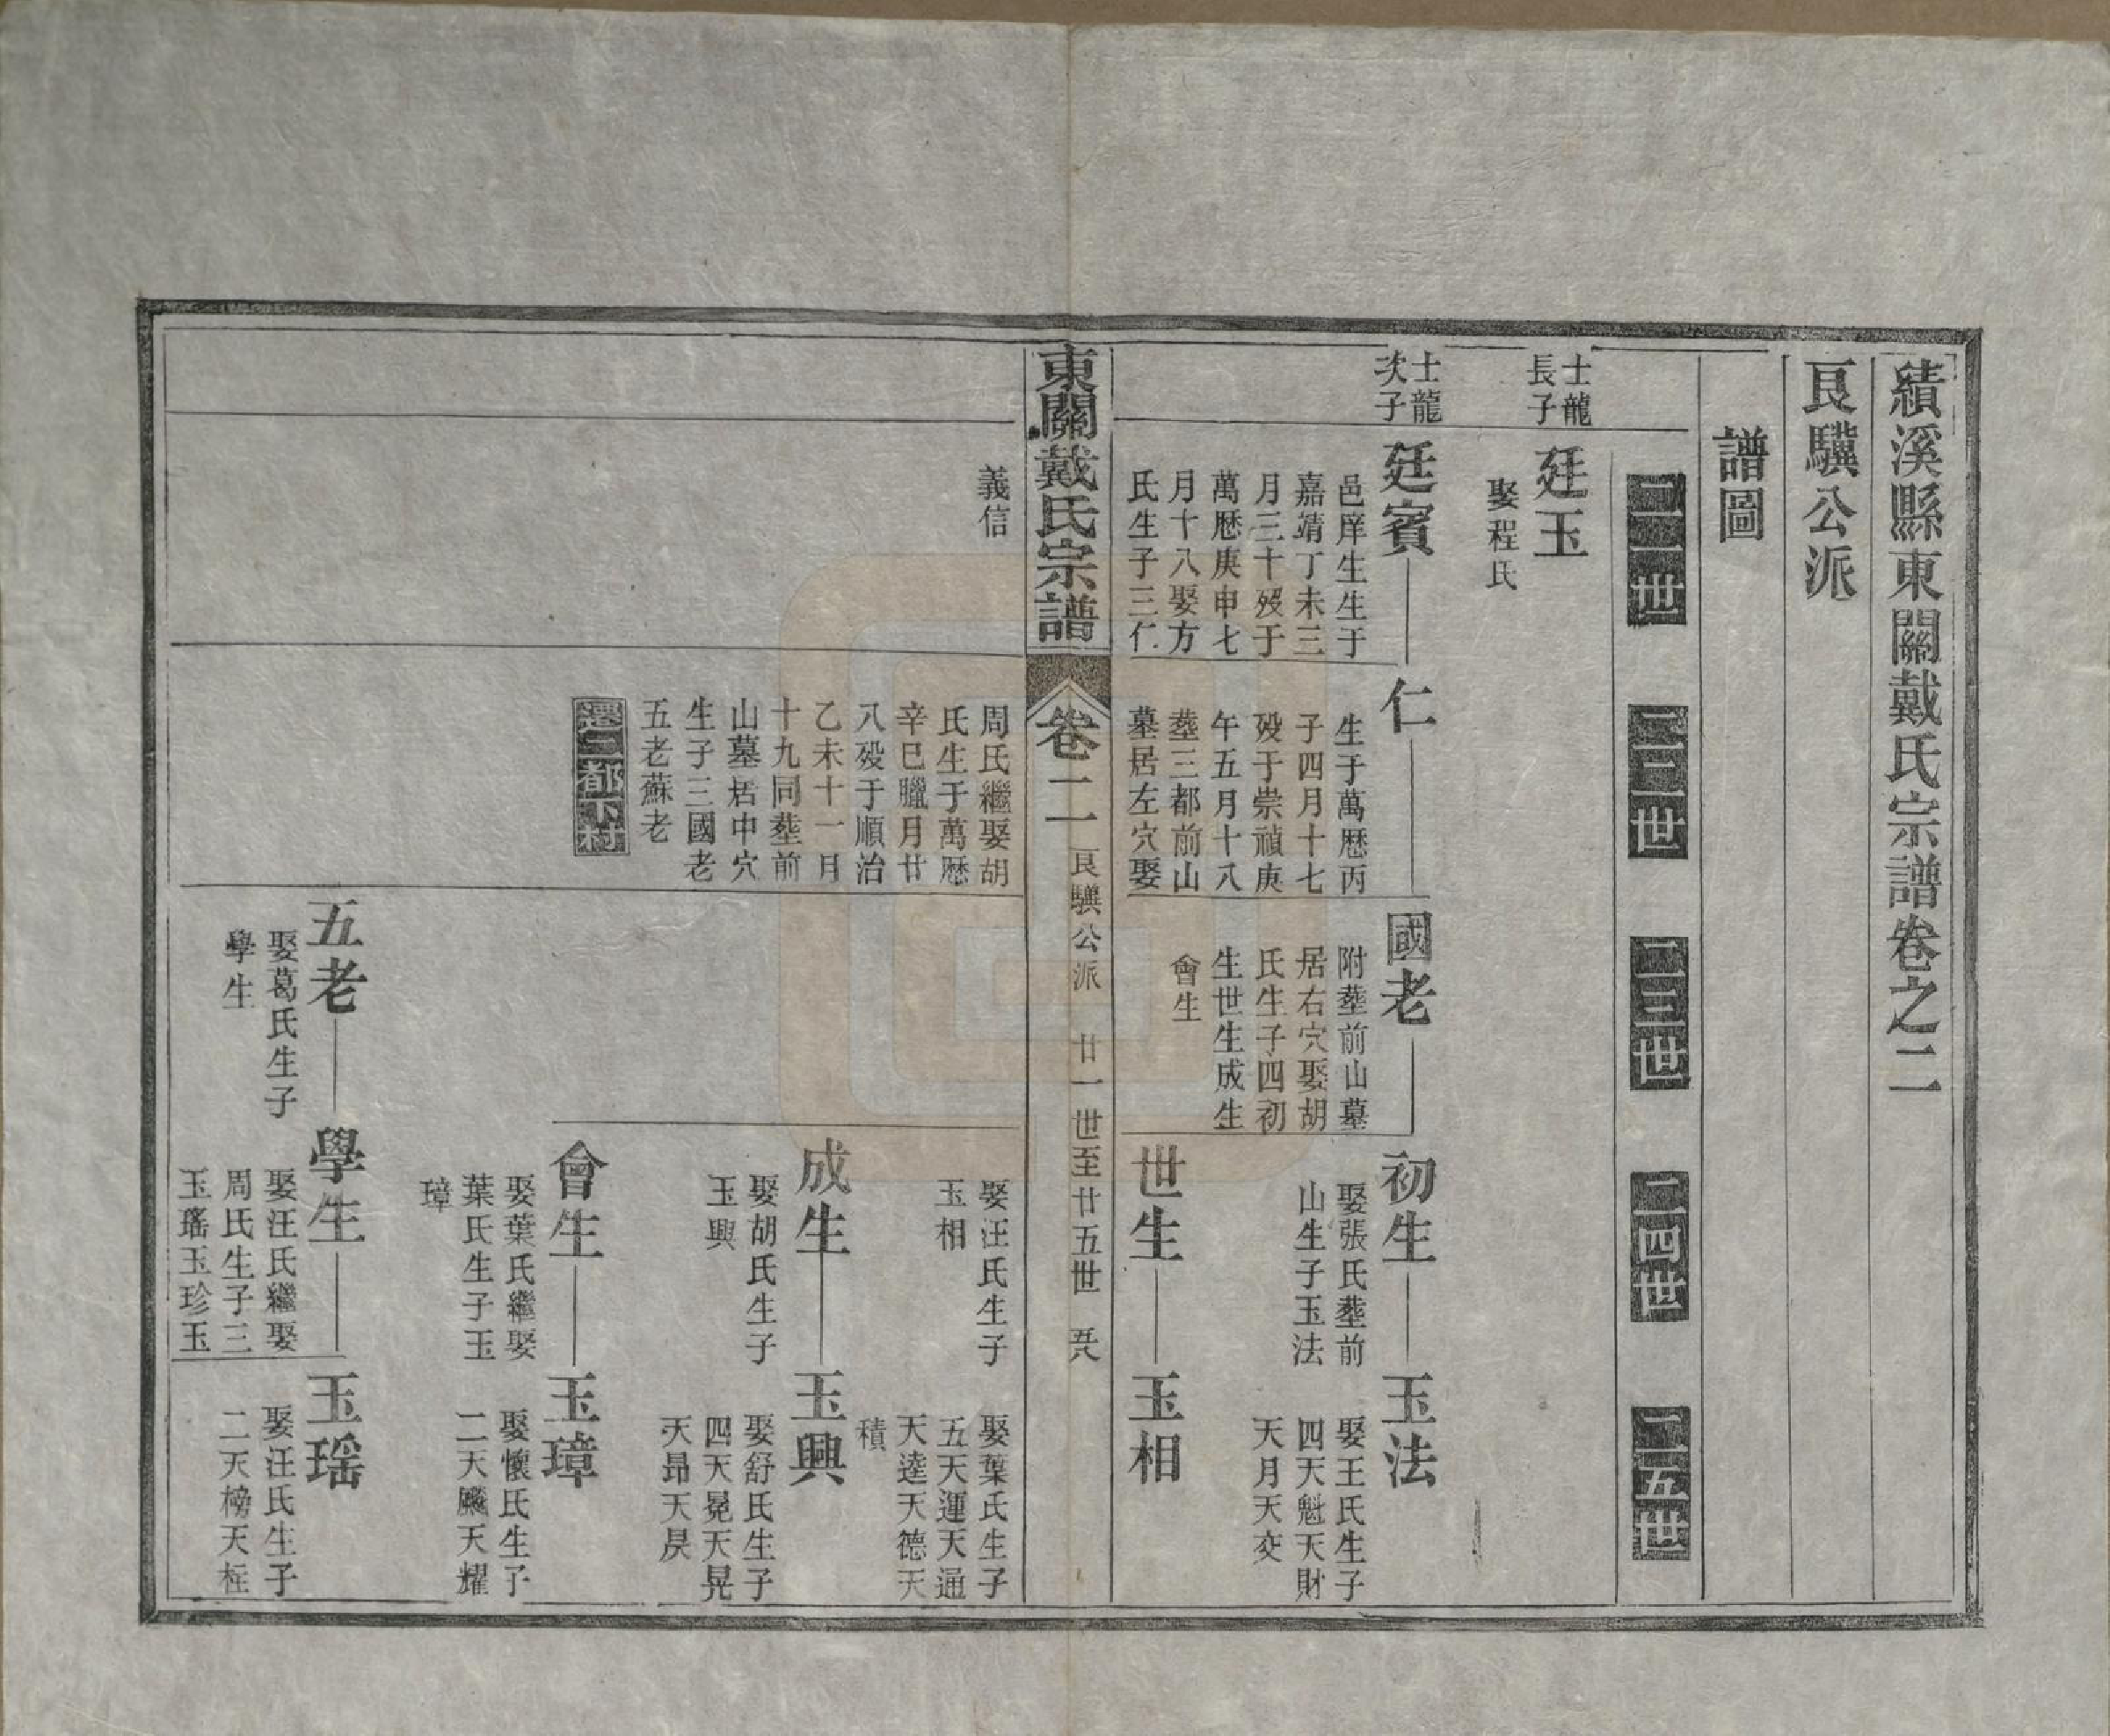 績溪縣東關戴氏宗譜卷之二
艮驥公派
譜圖
二一世
二二世
二三世
二四世
二五世
士龍
長子
廷玉
娶程氏
士龍
次子
廷賓
邑庠生生于
嘉靖丁未三
月三十歿于
萬歷庚申七
月十八娶方
氏生子三仁
義信
仁
生于萬歷丙
子四月十七
歿于崇禎庚
午五月十八
塟三都前山
墓居左穴娶
周氏繼娶胡
氏生于萬歷
辛巳臘月廿
八歿于順治
乙未十一月
十九同塟前
山墓居中穴
生子三國老
五老蘇老
遷二都下村
國老
附塟前山墓
居右穴娶胡
氏生子四初
生世生成生
會生
初生
娶張氏塟前
山生子玉法
玉法
娶王氏生子
四天魁天財
天月天交
世生
娶汪氏生子
玉相
玉相
娶葉氏生子
五天運天通
天逵天德天
積
東關戴氏宗譜
卷二
艮驥公派
廿一世至廿五世
成生
娶胡氏生子
玉興
玉興
娶舒氏生子
四天晃天晃
天昻天昃
會生
娶葉氏繼娶
葉氏生子玉
璋
玉璋
娶懷氏生子
二天颺天耀
五老
娶葛氏生子
學生
學生
娶汪氏繼娶
周氏生子三
玉瑤玉珍玉
玉瑶
娶汪氏生子
二天榜天柱